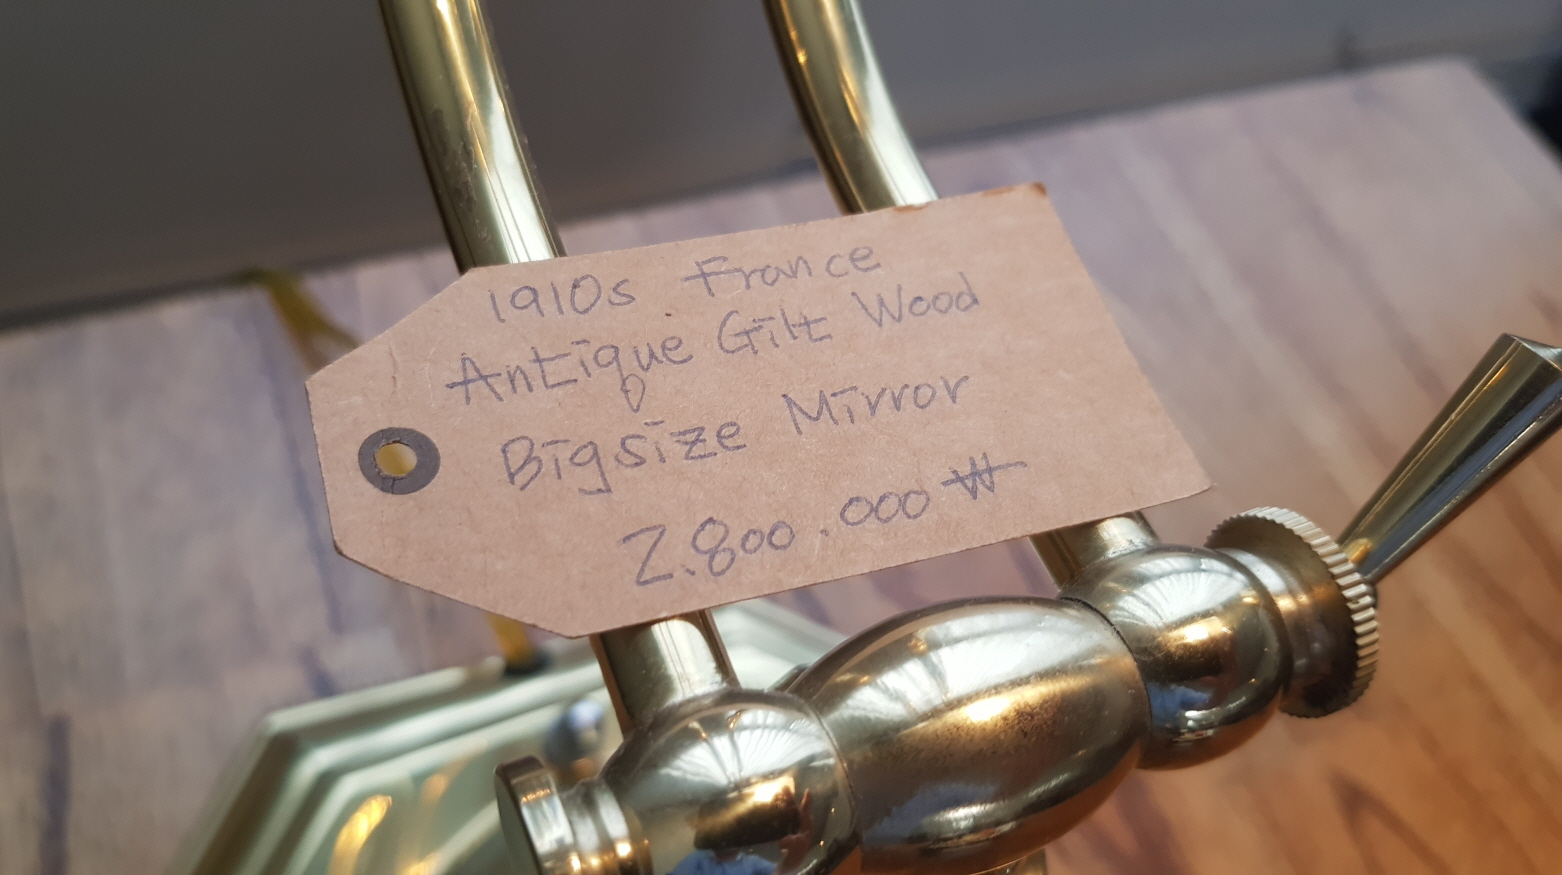 1910s France
Antique Gilt Wood
Bigsize Mirror
2.800.000 ₩